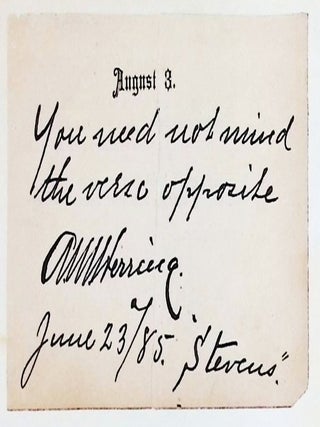 August 3.
You need not mind
the verse opposite
Herring.
June 23/85. "Stevens."